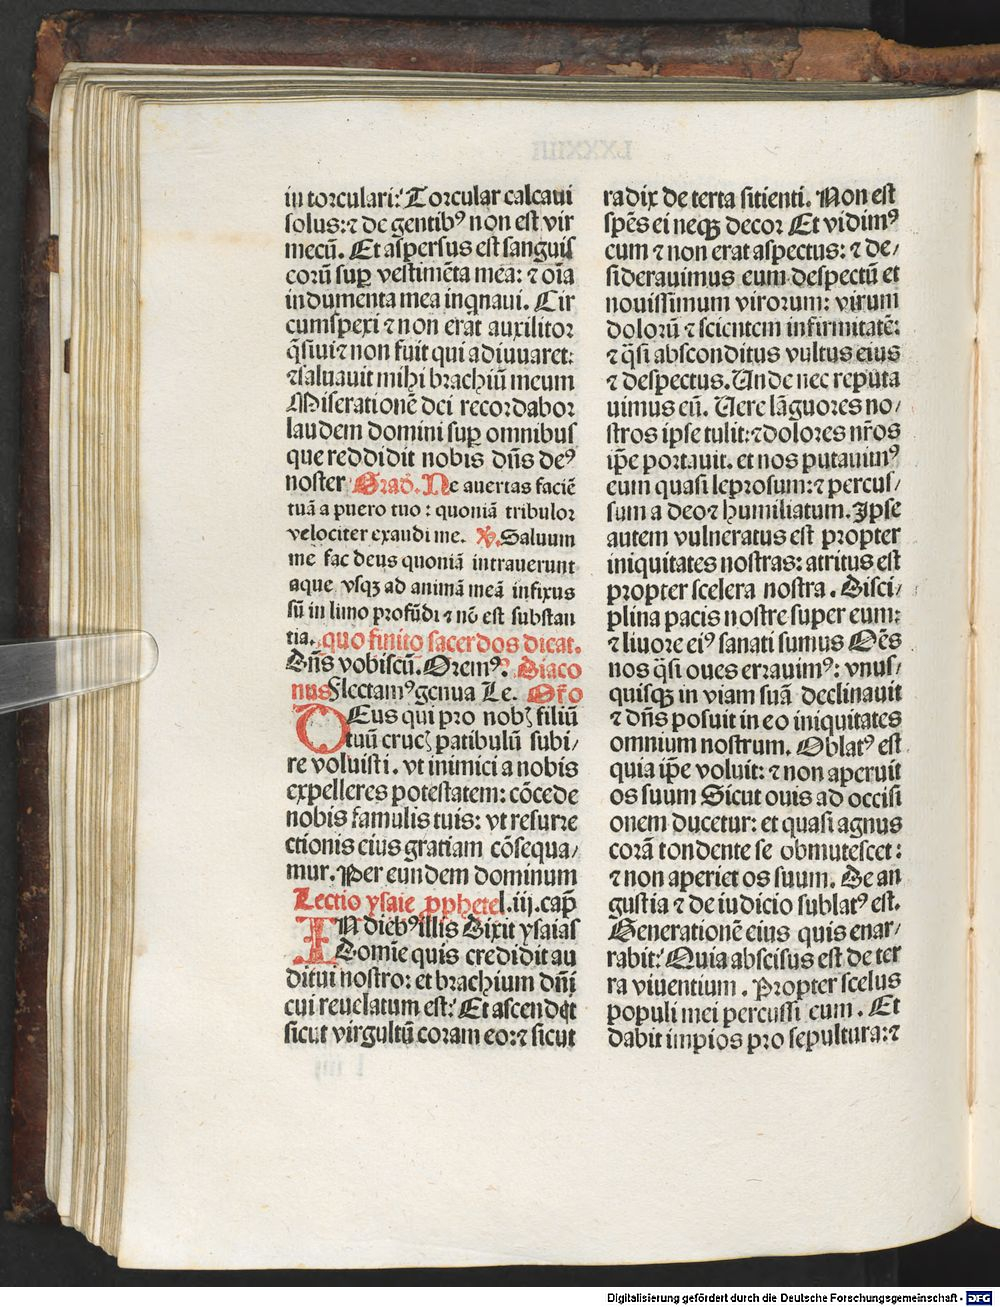 in torculari: Torcular calcaui
solus: ⁊ de gentibꝰ non est vir
mecū. Et aspersus est sanguis
corū suꝑ vestimēta mea: ⁊ oīa
indumenta mea inqnaui. Cir
cumspexi ⁊ non erat auxilitor
q̄siui ⁊ non fuit qui adiuuaret:
⁊ saluauit mihi brachiū meum
Miserationē dei recordabor
laudem domini suꝑ omnibus
que reddidit nobis dn̄s deꝰ
noster Grad. Ne auertas faciē
tuā a puero tuo: quoniā tribulor
velociter exaudi me. ℣. Saluum
me fac deus quoniā intrauerunt
aque vsqꝫ ad animā meā infixus
sū in limo profūdi ⁊ nō est substan
tia. quo finito sacerdos dicat.
Dn̄s vobiscū. Oremꝰ. Diaco
nus Flectamꝰ genua Le. Oŕo
DEus qui pro nobꝭ filiū
tuū crucꝭ patibulū subi/
re voluisti. vt inimici a nobis
expelleres potestatem: cōcede
nobis famulis tuis: vt resurre
ctionis eius gratiam cōsequa/
mur. Per eundem dominum
Lectio ysaie ꝓphete l.iij. cap̄
IN diebꝰ illis Dixit ysaias
Domīe quis credidit au
ditui nostro: et brachium dn̄i
cui reuelatum est: Et ascendet
sicut virgultū coram eo: ⁊ sicut
radix de terta sitienti. Non est
spēs ei neqꝫ decor Et vidimꝰ
eum ⁊ non erat aspectus: ⁊ de/
siderauimus eum despectū et
nouissimum virorum: virum
dolorū ⁊ scientem infirmitatē:
⁊ q̄si absconditus vultus eius
⁊ despectus. Unde nec reputa
uimus eū. Uere lāguores no/
stros ipse tulit: ⁊ dolores nr̄os
ip̄e portauit. et nos putauimꝰ
eum quasi leprosum: ⁊ percus/
sum a deo ⁊ humiliatum. Ipse
autem vulneratus est propter
iniquitates nostras: atritus est
propter scelera nostra. Disci/
plina pacis nostre super eum:
⁊ liuore eiꝰ sanati sumus Oēs
nos q̄si oues errauimꝰ: vnus/
quisqꝫ in viam suā declinauit
⁊ dn̄s posuit in eo iniquitates
omnium nostrum. Oblatꝰ est
quia ip̄e voluit: ⁊ non aperuit
os suum Sicut ouis ad occisi
onem ducetur: et quasi agnus
corā tondente se obmutescet:
⁊ non aperiet os suum. De an
gustia ⁊ de iudicio sublatꝰ est.
Generationē eius quis enar/
rabit: Quia abscisus est de ter
ra viuentium. Propter scelus
populi mei percussi eum. Et
dabit impios pro sepultura: ⁊
Digitalisierung gefördert durch die Deutsche Forschungsgemeinschaft - DFG